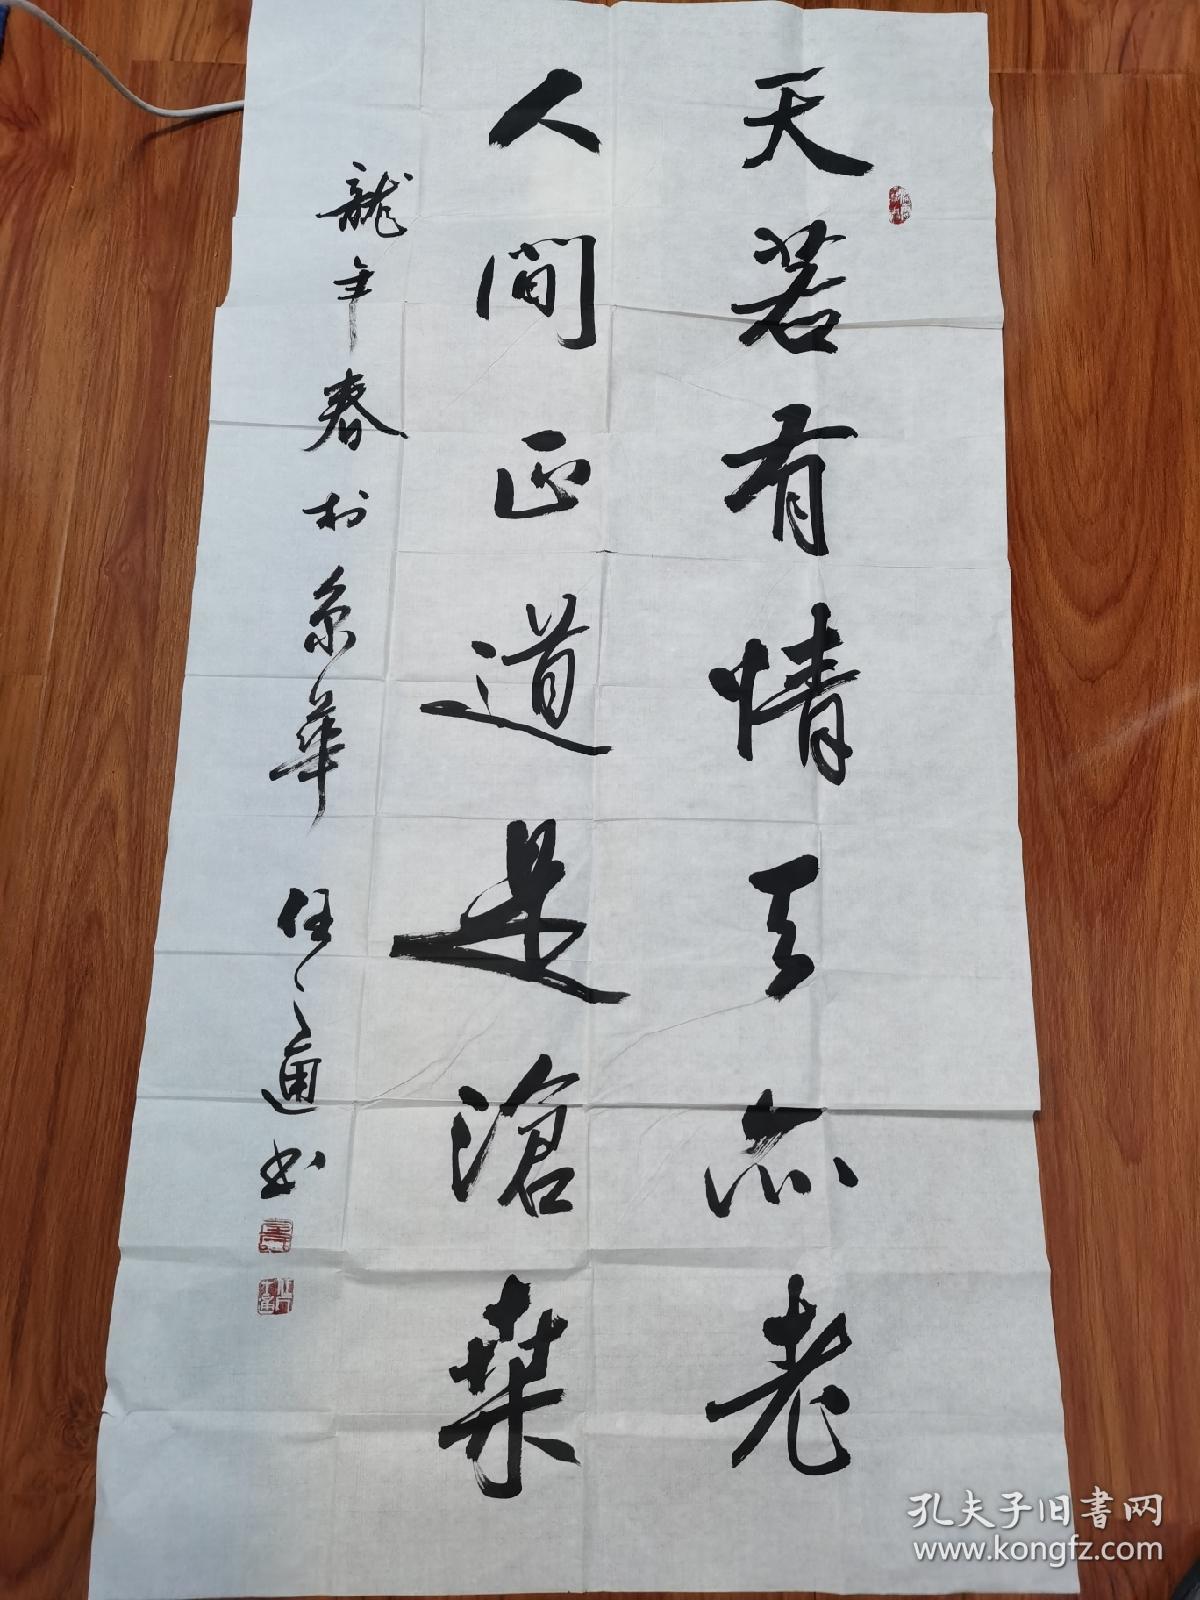 天若有情天亦老
人間正道是滄桑
龍年春於京華
任之通书
孔夫子旧书网
www.kongfz.com